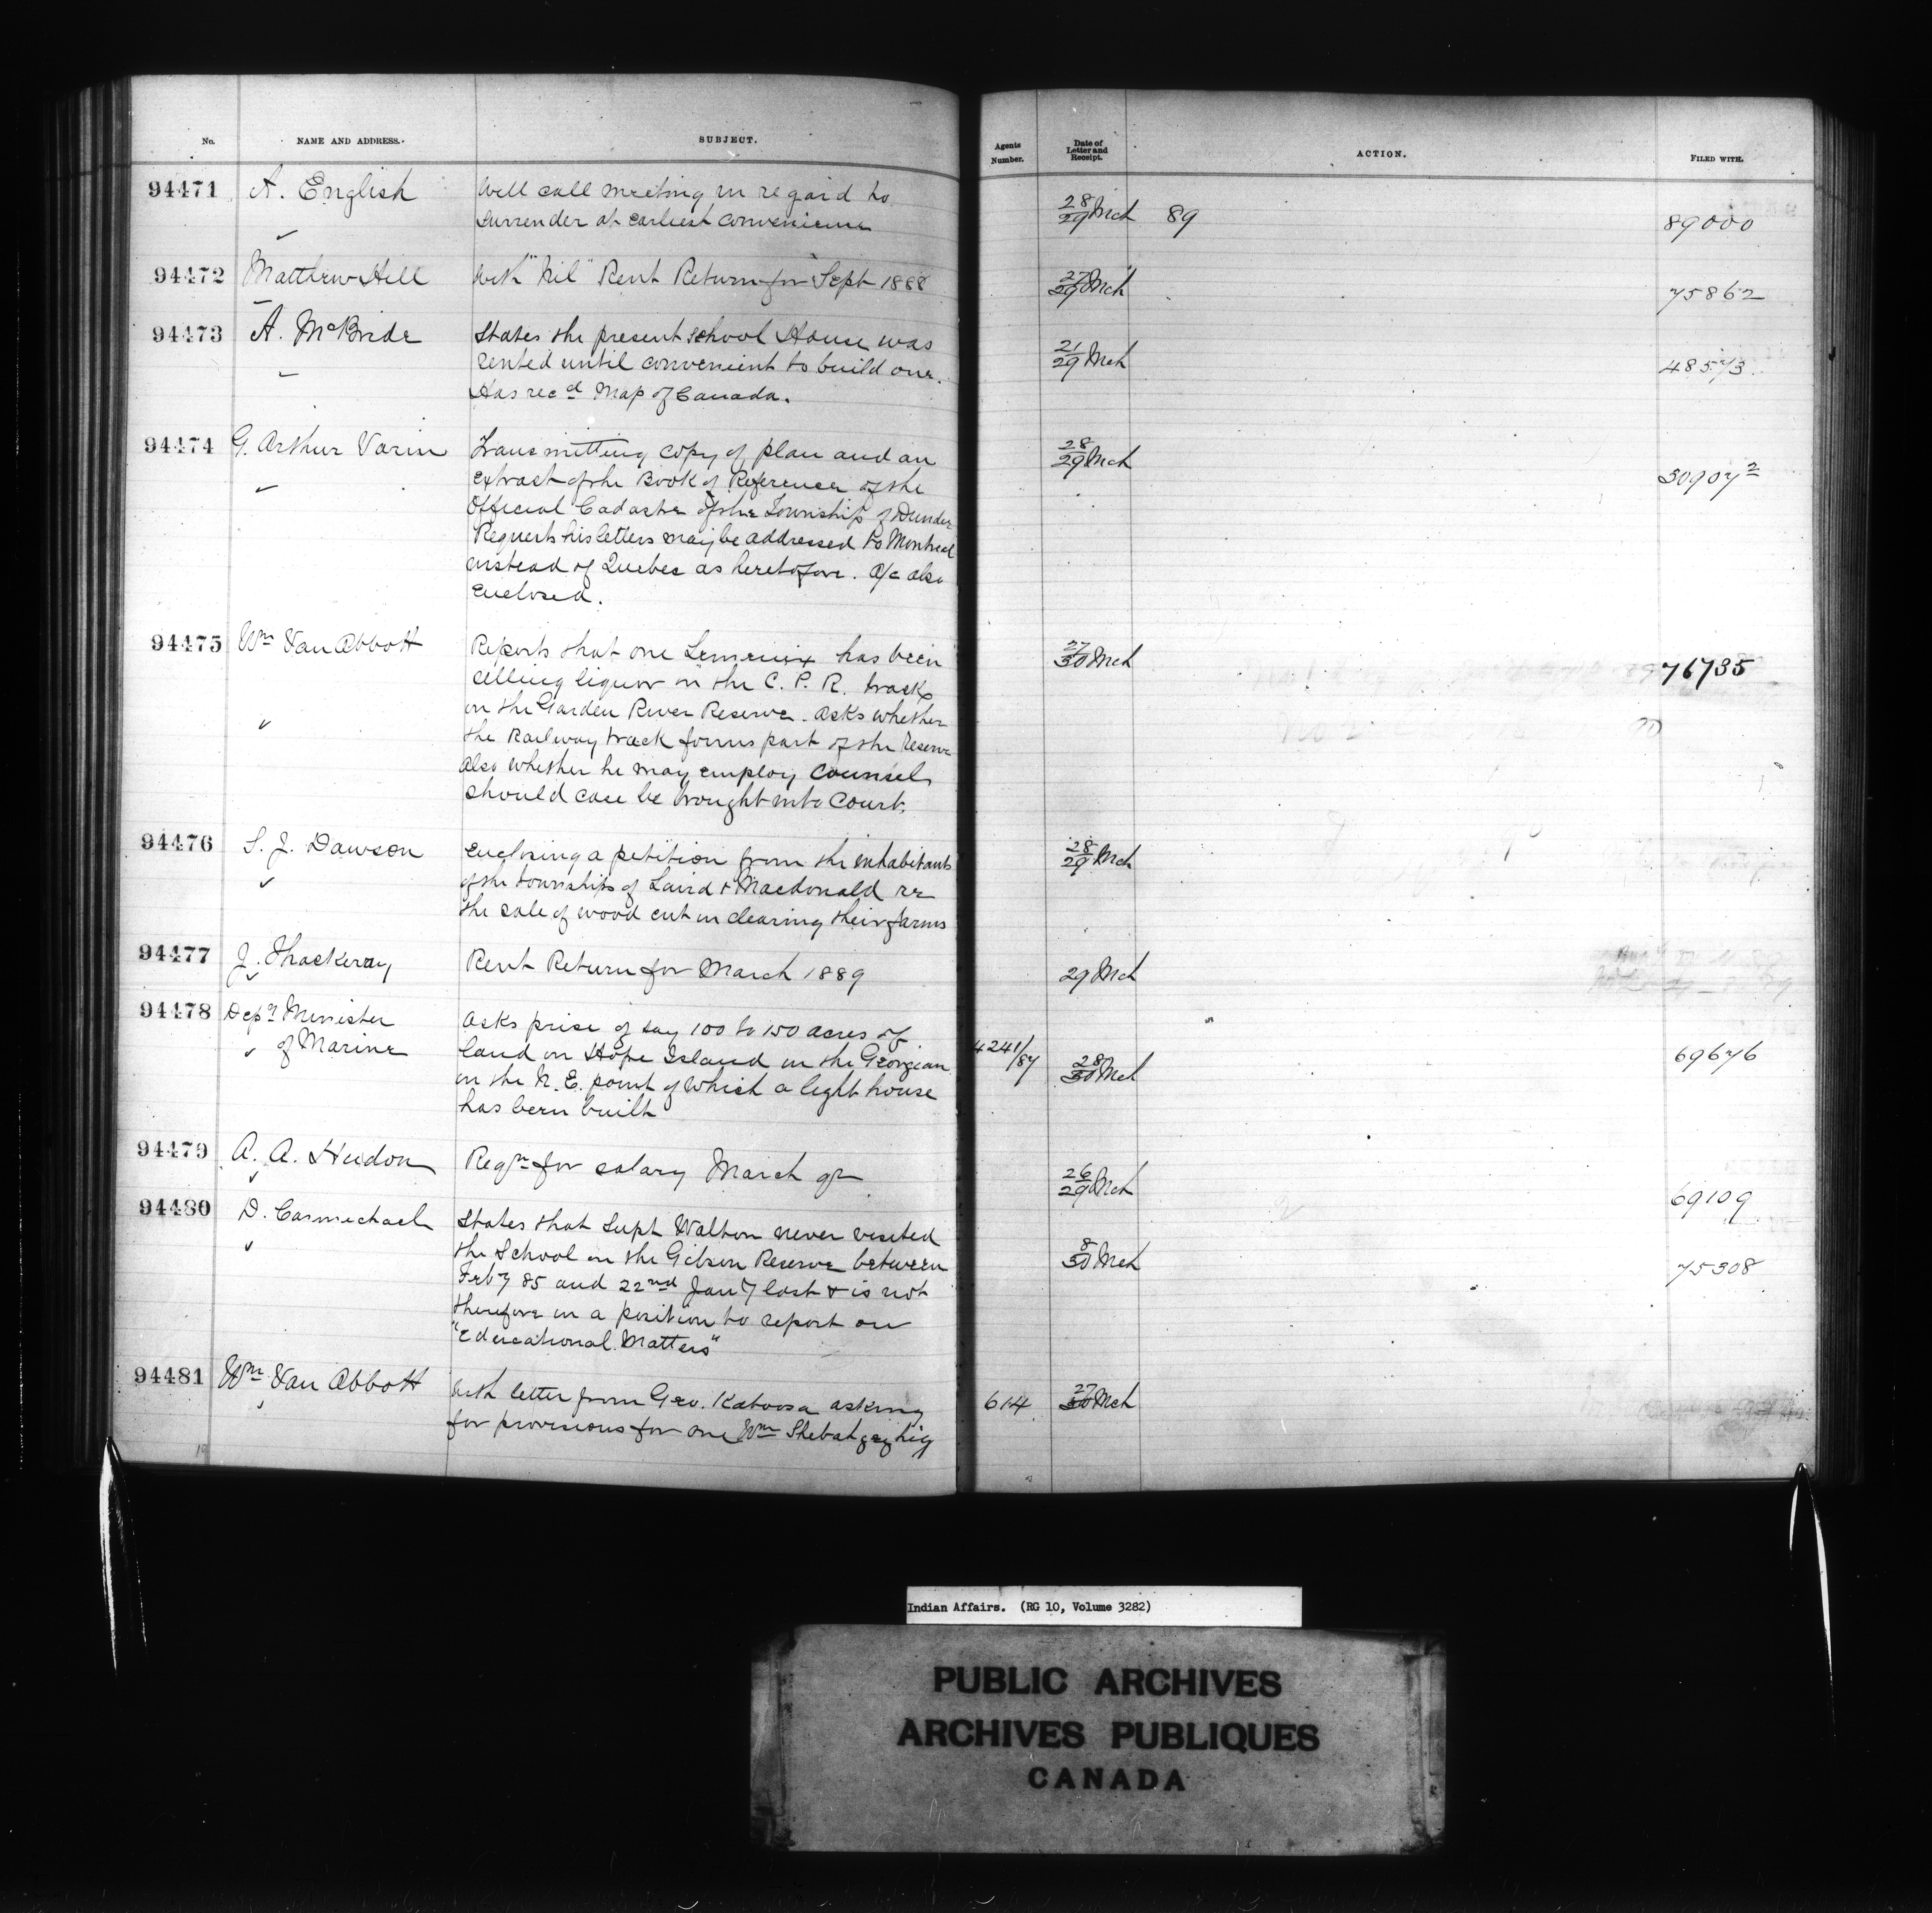 No. NAME AND ADDRESS. SUBJECT. Agents Number. Date of Letter and Receipt. ACTION. FILED WITH.
94471 A. English Will call meeting in regard to
surrender at earliest convenience 28/29 Mch 89 89000
94472 Matthew Hill With "Nil" Rent Return for Sept 1888 27/29 Mch 75862
94473 A. McBride States the present school House was
rented until convenient to build one. 21/29 Mch 48573
Has recd Map of Canada.
94474 G. Arthur Varin Transmitting copy of plan and an 28/29 Mch
extract of the Book of Reference of the 30907 2
Official Cadastre of the Township of Dundee
Requests his letters may be addressed to Montreal
instead of Quebec as heretofore. A/c also
enclosed.
94475 Wm Van Abbott Reports that one Lemenix has been 27/30 Mch 76735
selling liquor on the C. P. R. track
on the Garden River Reserve. Asks whether
the Railway track forms part of the Reserve
also whether he may employ Counsel
should case be brought into Court.
94476 S. J. Dawson Enclosing a petition from the inhabitants 28/29 Mch
of the townships of Laird & Macdonald re
the sale of wood cut in clearing their farms
94477 J. Thackeray Rent Return for March 1889 29 Mch
94478 Depy Minister Asks price of say 100 to 150 acres of
of Marine land on Hope Island in the Georgian 4241/87 28/30 Mch 69676
on the N. E. point of which a light house
has been built
94479 A. A. Hudon Reqn for salary March qr 26/29 Mch 69109
94480 D. Carmichael States that Supt Walton never visited
the School on the Gibson Reserve between 8/30 Mch 75308
Feby 85 and 22nd Jany last & is not
therefore in a position to report on
"Educational Matters"
94481 Wm Van Abbott With letter from Geo. Kaboosa asking 614 27/30 Mch
for provisions for one Wm Shebahgezhig
19
Indian Affairs. (RG 10, Volume 3282)
PUBLIC ARCHIVES
ARCHIVES PUBLIQUES
CANADA